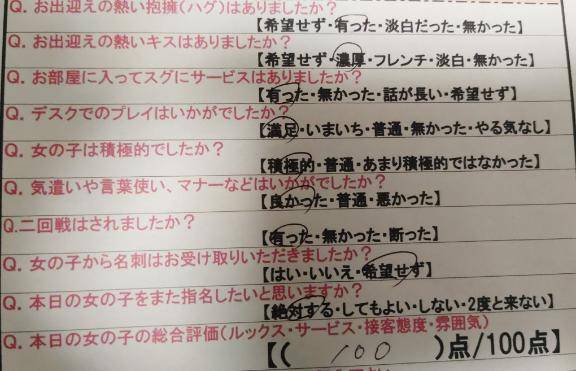 Q. お出迎えの熱い抱擁(ハグ)はありましたか?
【希望せず・有った・淡白だった・無かった】
Q. お出迎えの熱いキスはありましたか?
【希望せず・濃厚・フレンチ・淡白・無かった】
Q. お部屋に入ってスグにサービスはありましたか?
【有った・無かった・話が長い・希望せず】
Q. デスクでのプレイはいかがでしたか?
【満足・いまいち・普通・無かった・やる気なし】
Q. 女の子は積極的でしたか?
【積極的・普通・あまり積極的ではなかった】
Q. 気遣いや言葉使い、マナーなどはいかがでしたか?
【良かった・普通・悪かった】
Q.二回戦はされましたか?
【有った・無かった・断った】
Q. 女の子から名刺はお受け取りいただきましたか?
【はい・いいえ・希望せず】
Q. 本日の女の子をまた指名したいと思いますか?
【絶対する・してもよい・しない・2度と来ない】
Q. 本日の女の子の総合評価(ルックス・サービス・接客態度・雰囲気)
【( 100 )点/100点】